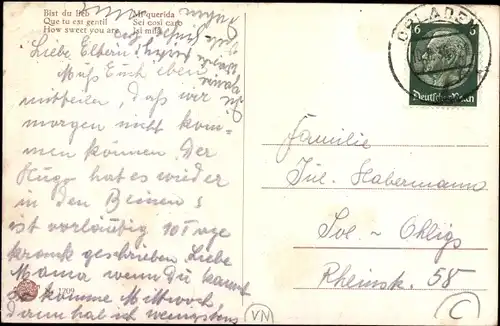 Bist du lieb
Mi querida
Que tu est gentil
Sei cosi caro
How sweet you are
Isi mila
Liebe Eltern!
Muß Euch eben
mitteilen, daß wir
morgen nicht kom-
men können. Der
Hugo hat es wieder
in den Beinen
ist vorläufig 10 Tage
krank geschrieben. Liebe
Mama wenn Du kannst
so komme Mittwoch,
Dann hab ich wenigstens
1209
6
6
Deutsches Reich
OPLADEN
Familie
Jul. Habermann
Sol - Ohligs
Rheinstr. 58
VN
C